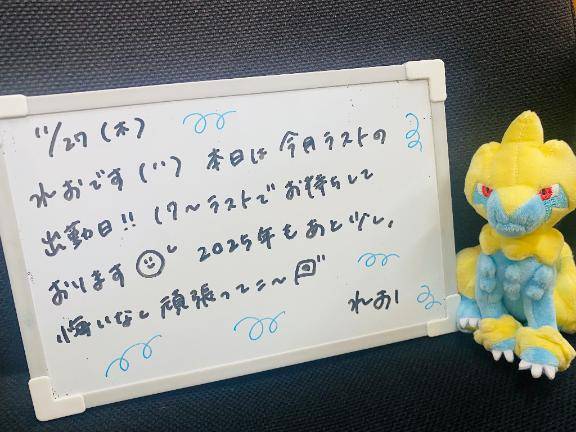 11/27(木)
れおです(¨) 本日は今月ラストの
出勤日!! 17〜ラストでお待ちして
おります 2025年もあと少し、
悔いなし頑張ってこ〜
れお